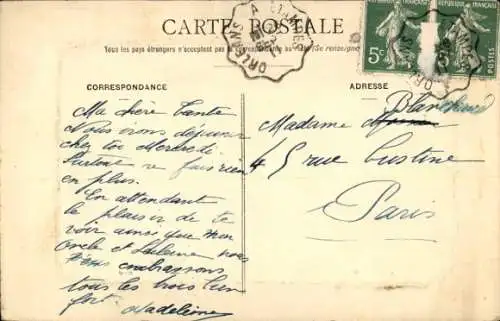 CARTE POSTALE
Tous les pays étrangers n'acceptent pas la correspondance au recto (Se renseigner
CORRESPONDANCE
Ma chère Tante
Nous irons dejeuner
chez toi Mercredi.
Surtout ne fais rien
en plus.
En attendant
le plaisir de te
voir ainsi que mon
Oncle et nous
embrassons
tous les trois bien
fort Madeleine
ADRESSE
Madame
45 rue Custine
Paris
5c
POSTES
ORLEANS